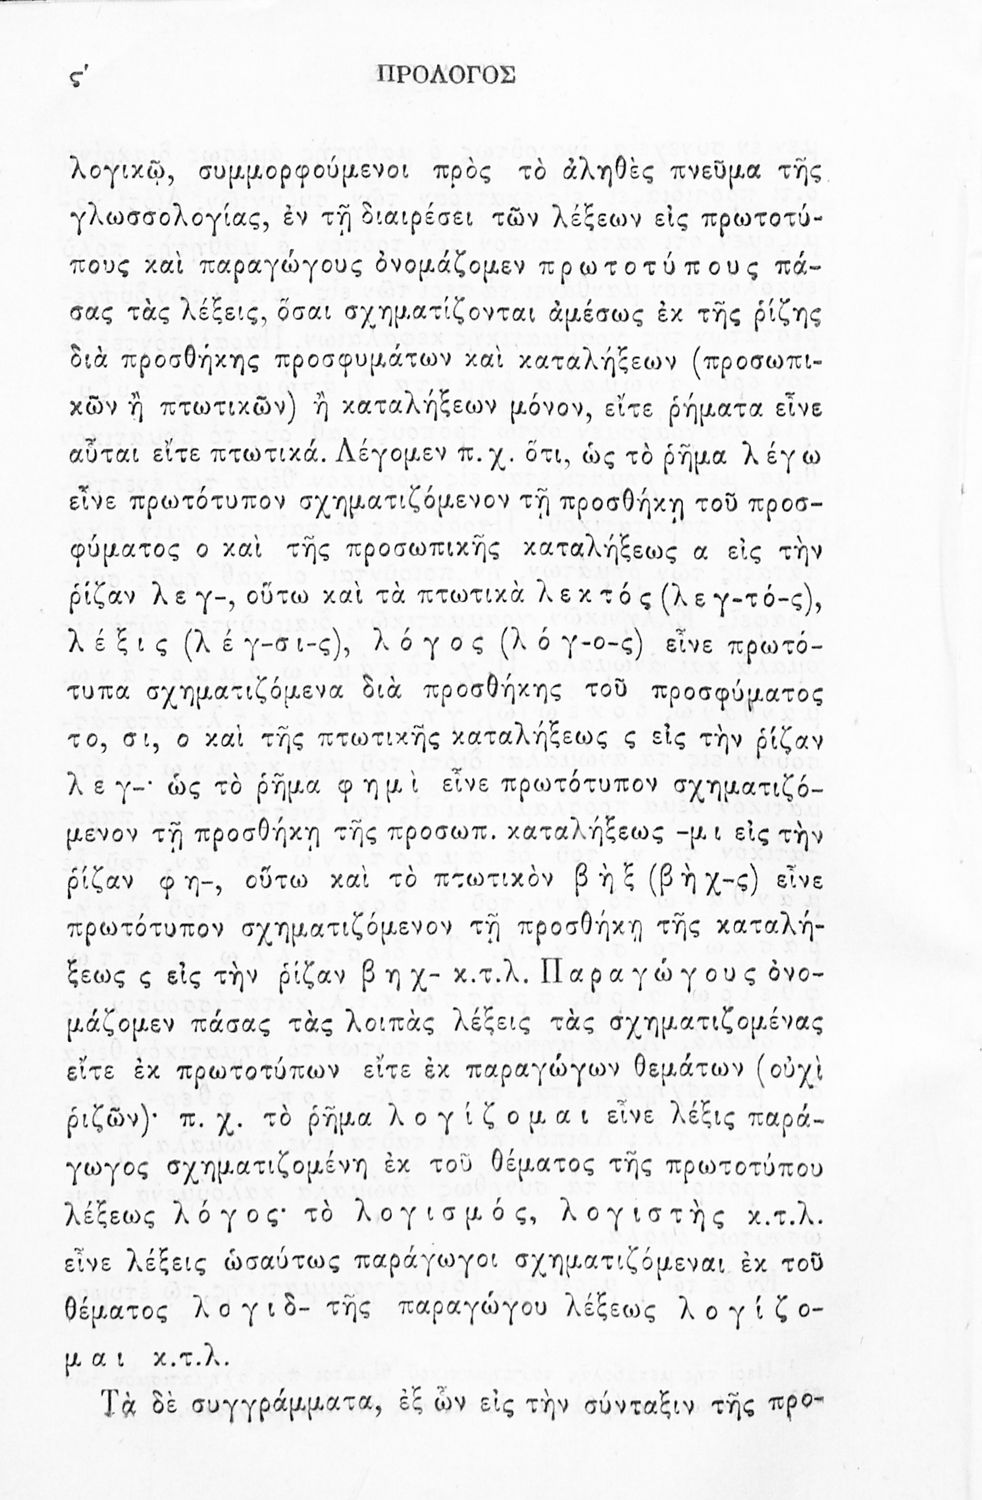 ϛ′ ΠΡΟΛΟΓΟΣ
λογικῷ, συμμορφούμενοι πρὸς τὸ ἀληθὲς πνεῦμα τῆς
γλωσσολογίας, ἐν τῇ διαιρέσει τῶν λέξεων εἰς πρωτοτύ-
πους καὶ παραγώγους ὀνομάζομεν πρωτοτύπους πά-
σας τὰς λέξεις, ὅσαι σχηματίζονται ἀμέσως ἐκ τῆς ῥίζης
διὰ προσθήκης προσφυμάτων καὶ καταλήξεων (προσωπι-
κῶν ἢ πτωτικῶν) ἢ καταλήξεων μόνον, εἴτε ῥήματα εἶνε
αὗται εἴτε πτωτικά. Λέγομεν π.χ. ὅτι, ὡς τὸ ῥῆμα λέγω
εἶνε πρωτότυπον σχηματιζόμενον τῇ προσθήκῃ τοῦ προσ-
φύματος ο καὶ τῆς προσωπικῆς καταλήξεως α εἰς τὴν
ῥίζαν λεγ-, οὕτω καὶ τὰ πτωτικὰ λεκτός (λεγ-τό-ς),
λέξις (λέγ-σι-ς), λόγος (λόγ-ο-ς) εἶνε πρωτό-
τυπα σχηματιζόμενα διὰ προσθήκης τοῦ προσφύματος
το, σι, ο καὶ τῆς πτωτικῆς καταλήξεως ς εἰς τὴν ῥίζαν
λεγ-· ὡς τὸ ῥῆμα φημὶ εἶνε πρωτότυπον σχηματιζό-
μενον τῇ προσθήκῃ τῆς προσωπ. καταλήξεως -μι εἰς τὴν
ῥίζαν φη-, οὕτω καὶ τὸ πτωτικὸν βὴξ (βὴχ-ς) εἶνε
πρωτότυπον σχηματιζόμενον τῇ προσθήκῃ τῆς καταλή-
ξεως ς εἰς τὴν ῥίζαν βηχ- κ.τ.λ. Παραγώγους ὀνο-
μάζομεν πάσας τὰς λοιπὰς λέξεις τὰς σχηματιζομένας
εἴτε ἐκ πρωτοτύπων εἴτε ἐκ παραγώγων θεμάτων (οὐχὶ
ῥιζῶν)· π. χ. τὸ ῥῆμα λογίζομαι εἶνε λέξις παρά-
γωγος σχηματιζομένη ἐκ τοῦ θέματος τῆς πρωτοτύπου
λέξεως λόγος· τὸ λογισμός, λογιστὴς κ.τ.λ.
εἶνε λέξεις ὡσαύτως παράγωγοι σχηματιζόμεναι ἐκ τοῦ
θέματος λογιδ- τῆς παραγώγου λέξεως λογίζο-
μαι κ.τ.λ.
Τὰ δὲ συγγράμματα, ἐξ ὧν εἰς τὴν σύνταξιν τῆς προ-